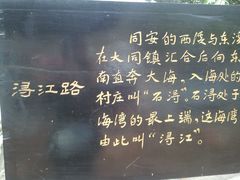 浔江路
同安的西溪与东溪
在大同镇汇合后向东
南直奔大海，入海处的
村庄叫“石浔”。石浔处于
海湾的最上端，这海湾
由此叫“浔江”。